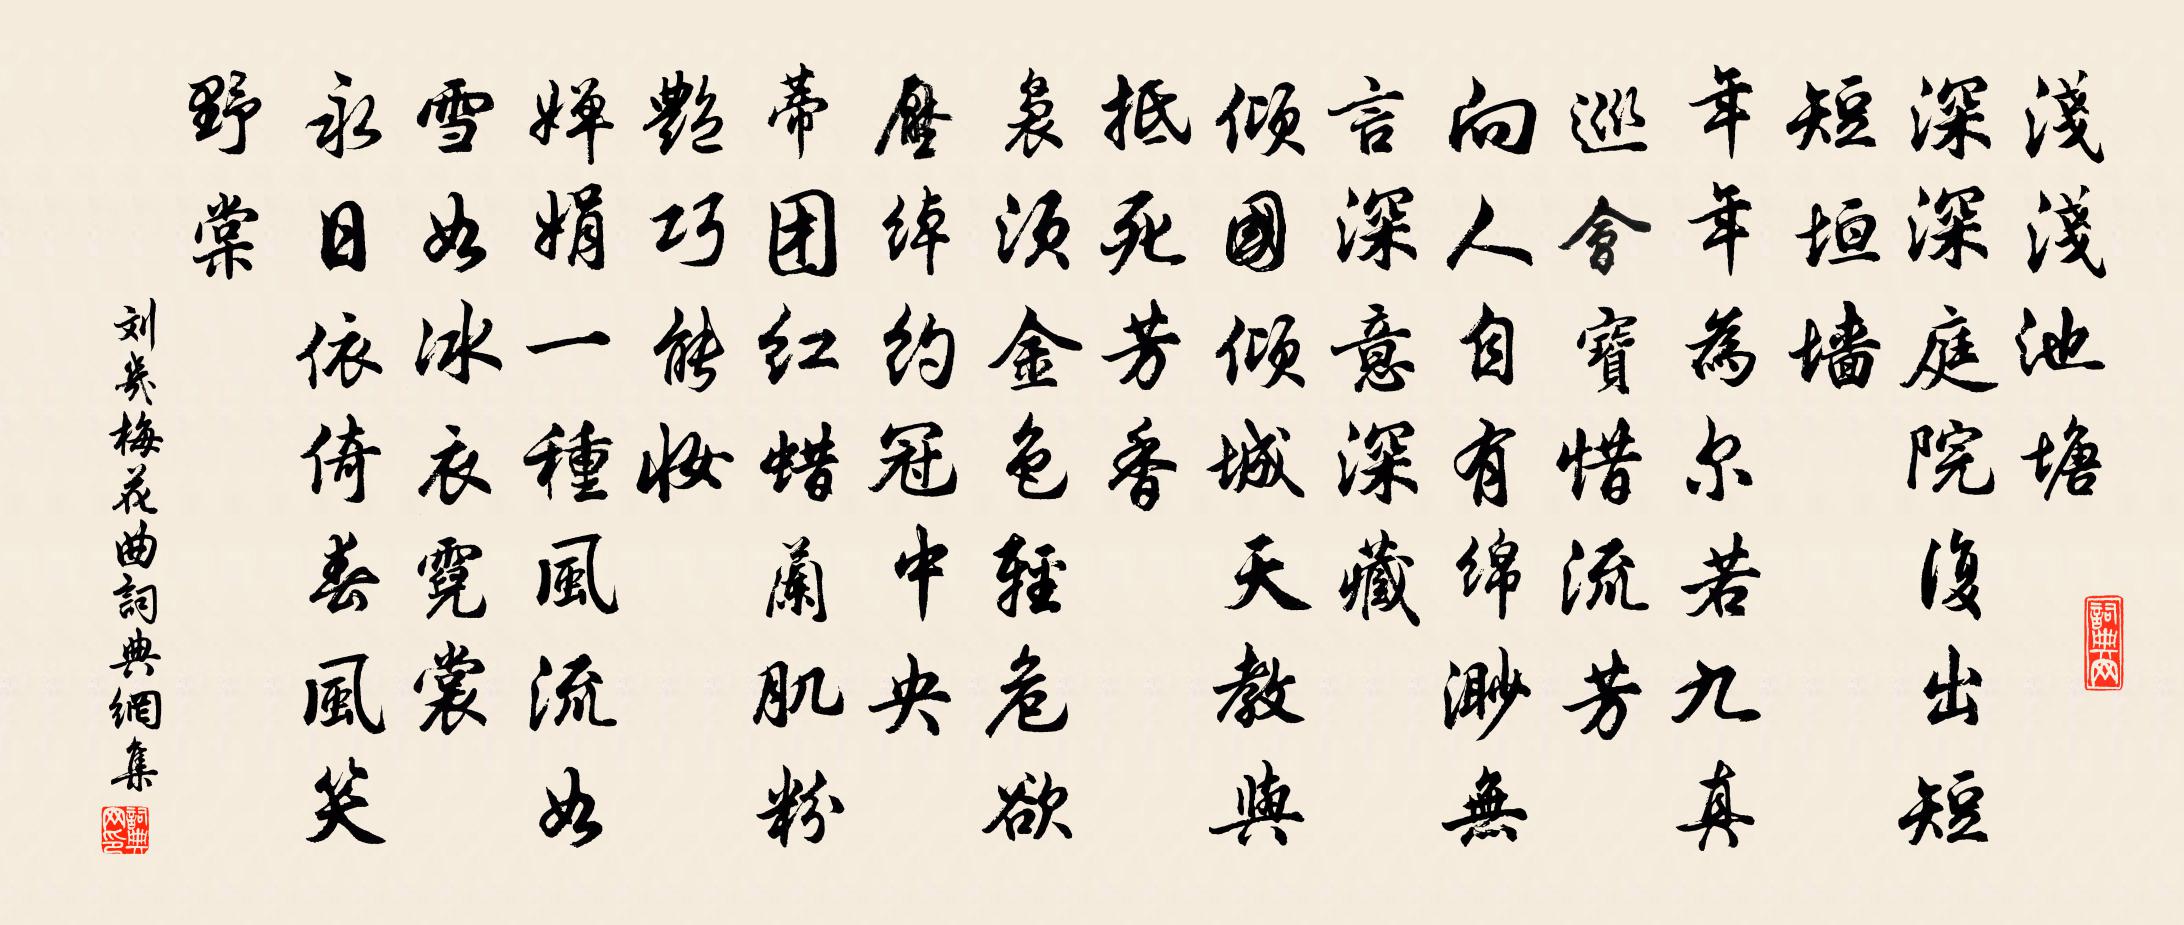 淺淺池塘
深深庭院復出短
短垣墻
年年為尔若九真
巡會寶惜流芳
向人自有绵渺無
言深意深藏
傾國傾城天教與
抵死芳香
裊須金色輕危欲
壓綽約冠中央
蒂团红蜡蘭肌粉
艷巧能妝
嬋娟一種風流如
雪如冰衣霓裳
永日依倚春風笑
野棠
刘幾梅花曲詞典網集
詞典网
詞典网印